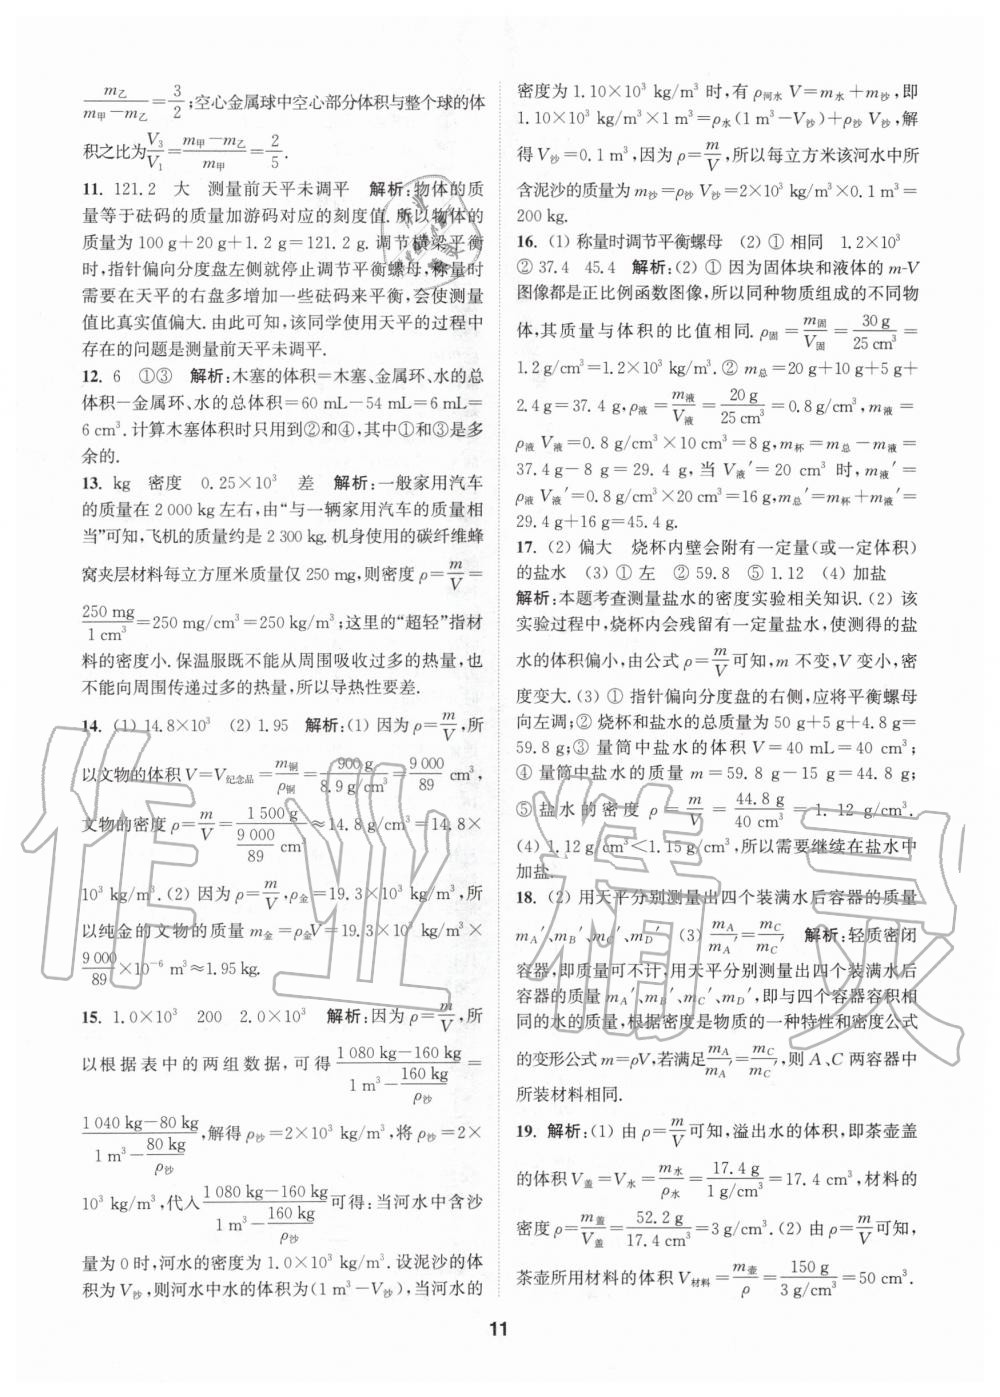 m乙/(m甲−m乙)=3/2;空心金属球中空心部分体积与整个球的体
积之比为V₃/V₁=(m甲−m乙)/m甲=2/5.
11. 121.2 大 测量前天平未调平 解析:物体的质
量等于砝码的质量加游码对应的刻度值. 所以物体的
质量为 100 g+20 g+1.2 g=121.2 g. 调节横梁平衡
时,指针偏向分度盘左侧就停止调节平衡螺母,称量时
需要在天平的右盘多增加一些砝码来平衡,会使测量
值比真实值偏大. 由此可知,该同学使用天平的过程中
存在的问题是测量前天平未调平.
12. 6 ①③ 解析:木塞的体积=木塞、金属环、水的总
体积−金属环、水的总体积=60 mL−54 mL=6 mL=
6 cm³. 计算木塞体积时只用到②和④,其中①和③是多
余的.
13. kg 密度 0.25×10³ 差 解析:一般家用汽车
的质量在 2 000 kg左右,由“与一辆家用汽车的质量相
当”可知,飞机的质量约是 2 300 kg. 机身使用的碳纤维蜂
窝夹层材料每立方厘米质量仅 250 mg,则密度 ρ=m/V=
250 mg/1 cm³=250 mg/cm³=250 kg/m³;这里的“超轻”指材
料的密度小. 保温服既不能从周围吸收过多的热量,也
不能向周围传递过多的热量,所以导热性要差.
14. (1) 14.8×10³ (2) 1.95 解析:(1) 因为 ρ=m/V,所
以文物的体积 V=V纪念品=m铜/ρ铜=900 g/8.9 g/cm³=9 000/89 cm³,
文物的密度 ρ=m/V=1 500 g/(9 000/89 cm³)≈14.8 g/cm³=14.8×
10³ kg/m³. (2) 因为 ρ=m/V,ρ金=19.3×10³ kg/m³,所
以纯金的文物的质量 m金=ρ金V=19.3×10³ kg/m³×
9 000/89×10⁻⁶ m³≈1.95 kg.
15. 1.0×10³ 200 2.0×10³ 解析:因为 ρ=m/V,所
以根据表中的两组数据,可得(1 080 kg−160 kg)/(1 m³−160 kg/ρ沙)=
(1 040 kg−80 kg)/(1 m³−80 kg/ρ沙),解得 ρ沙=2×10³ kg/m³,将 ρ沙=2×
10³ kg/m³,代入(1 080 kg−160 kg)/(1 m³−160 kg/ρ沙)可得:当河水中含沙
量为 0 时,河水的密度为 1.0×10³ kg/m³. 设泥沙的体
积为 V沙,则河水中水的体积为(1 m³−V沙),当河水的
密度为 1.10×10³ kg/m³ 时,有 ρ河水 V=m水+m沙,即
1.10×10³ kg/m³×1 m³=ρ水(1 m³−V沙)+ρ沙 V沙,解
得 V沙=0.1 m³,因为 ρ=m/V,所以每立方米该河水中所
含泥沙的质量为 m沙=ρ沙 V沙=2×10³ kg/m³×0.1 m³=
200 kg.
16. (1) 称量时调节平衡螺母 (2) ① 相同 1.2×10³
② 37.4 45.4 解析:(2) ① 因为固体块和液体的 m-V
图像都是正比例函数图像,所以同种物质组成的不同物
体,其质量与体积的比值相同. ρ固=m固/V固=30 g/25 cm³=
1.2 g/cm³=1.2×10³ kg/m³. ② m总=20 g+10 g+5 g+
2.4 g=37.4 g,ρ液=m液/V液=20 g/25 cm³=0.8 g/cm³,m液=
ρ液 V液=0.8 g/cm³×10 cm³=8 g,m杯=m总−m液=
37.4 g−8 g=29.4 g,当 V液′=20 cm³ 时,m液′=
ρ液 V液′=0.8 g/cm³×20 cm³=16 g,m总′=m杯+m液′=
29.4 g+16 g=45.4 g.
17. (2) 偏大 烧杯内壁会附有一定量(或一定体积)
的盐水 (3) ① 左 ② 59.8 ⑤ 1.12 (4) 加盐
解析:本题考查测量盐水的密度实验相关知识. (2) 该
实验过程中,烧杯内会残留有一定量盐水,使测得的盐
水的体积偏小,由公式 ρ=m/V可知,m 不变,V 变小,密
度变大. (3) ① 指针偏向分度盘的右侧,应将平衡螺母
向左调;② 烧杯和盐水的总质量为 50 g+5 g+4.8 g=
59.8 g;③ 量筒中盐水的体积 V=40 mL=40 cm³;
④ 量筒中盐水的质量 m=59.8 g−15 g=44.8 g;
⑤ 盐水的密度 ρ=m/V=44.8 g/40 cm³=1.12 g/cm³.
(4) 1.12 g/cm³<1.15 g/cm³,所以需要继续在盐水中
加盐.
18. (2) 用天平分别测量出四个装满水后容器的质量
mA′、mB′、mC′、mD′ (3) mA/mA′=mC/mC′ 解析:轻质密闭
容器,即质量可不计,用天平分别测量出四个装满水后
容器的质量 mA′、mB′、mC′、mD′,即为四个容器容积相
同的水的质量,根据密度是物质的一种特性和密度公式
的变形公式 m=ρV,若满足mA/mA′=mC/mC′,则 A、C 两容器中
所装材料相同.
19. 解析:(1) 由 ρ=m/V可知,溢出水的体积,即茶壶盖
的体积 V盖=V水=m水/ρ水=17.4 g/1 g/cm³=17.4 cm³,材料的
密度 ρ=m盖/V盖=52.2 g/17.4 cm³=3 g/cm³. (2) 由 ρ=m/V可知,
茶壶所用材料的体积 V材料=m壶/ρ=150 g/3 g/cm³=50 cm³.
11
作业精灵